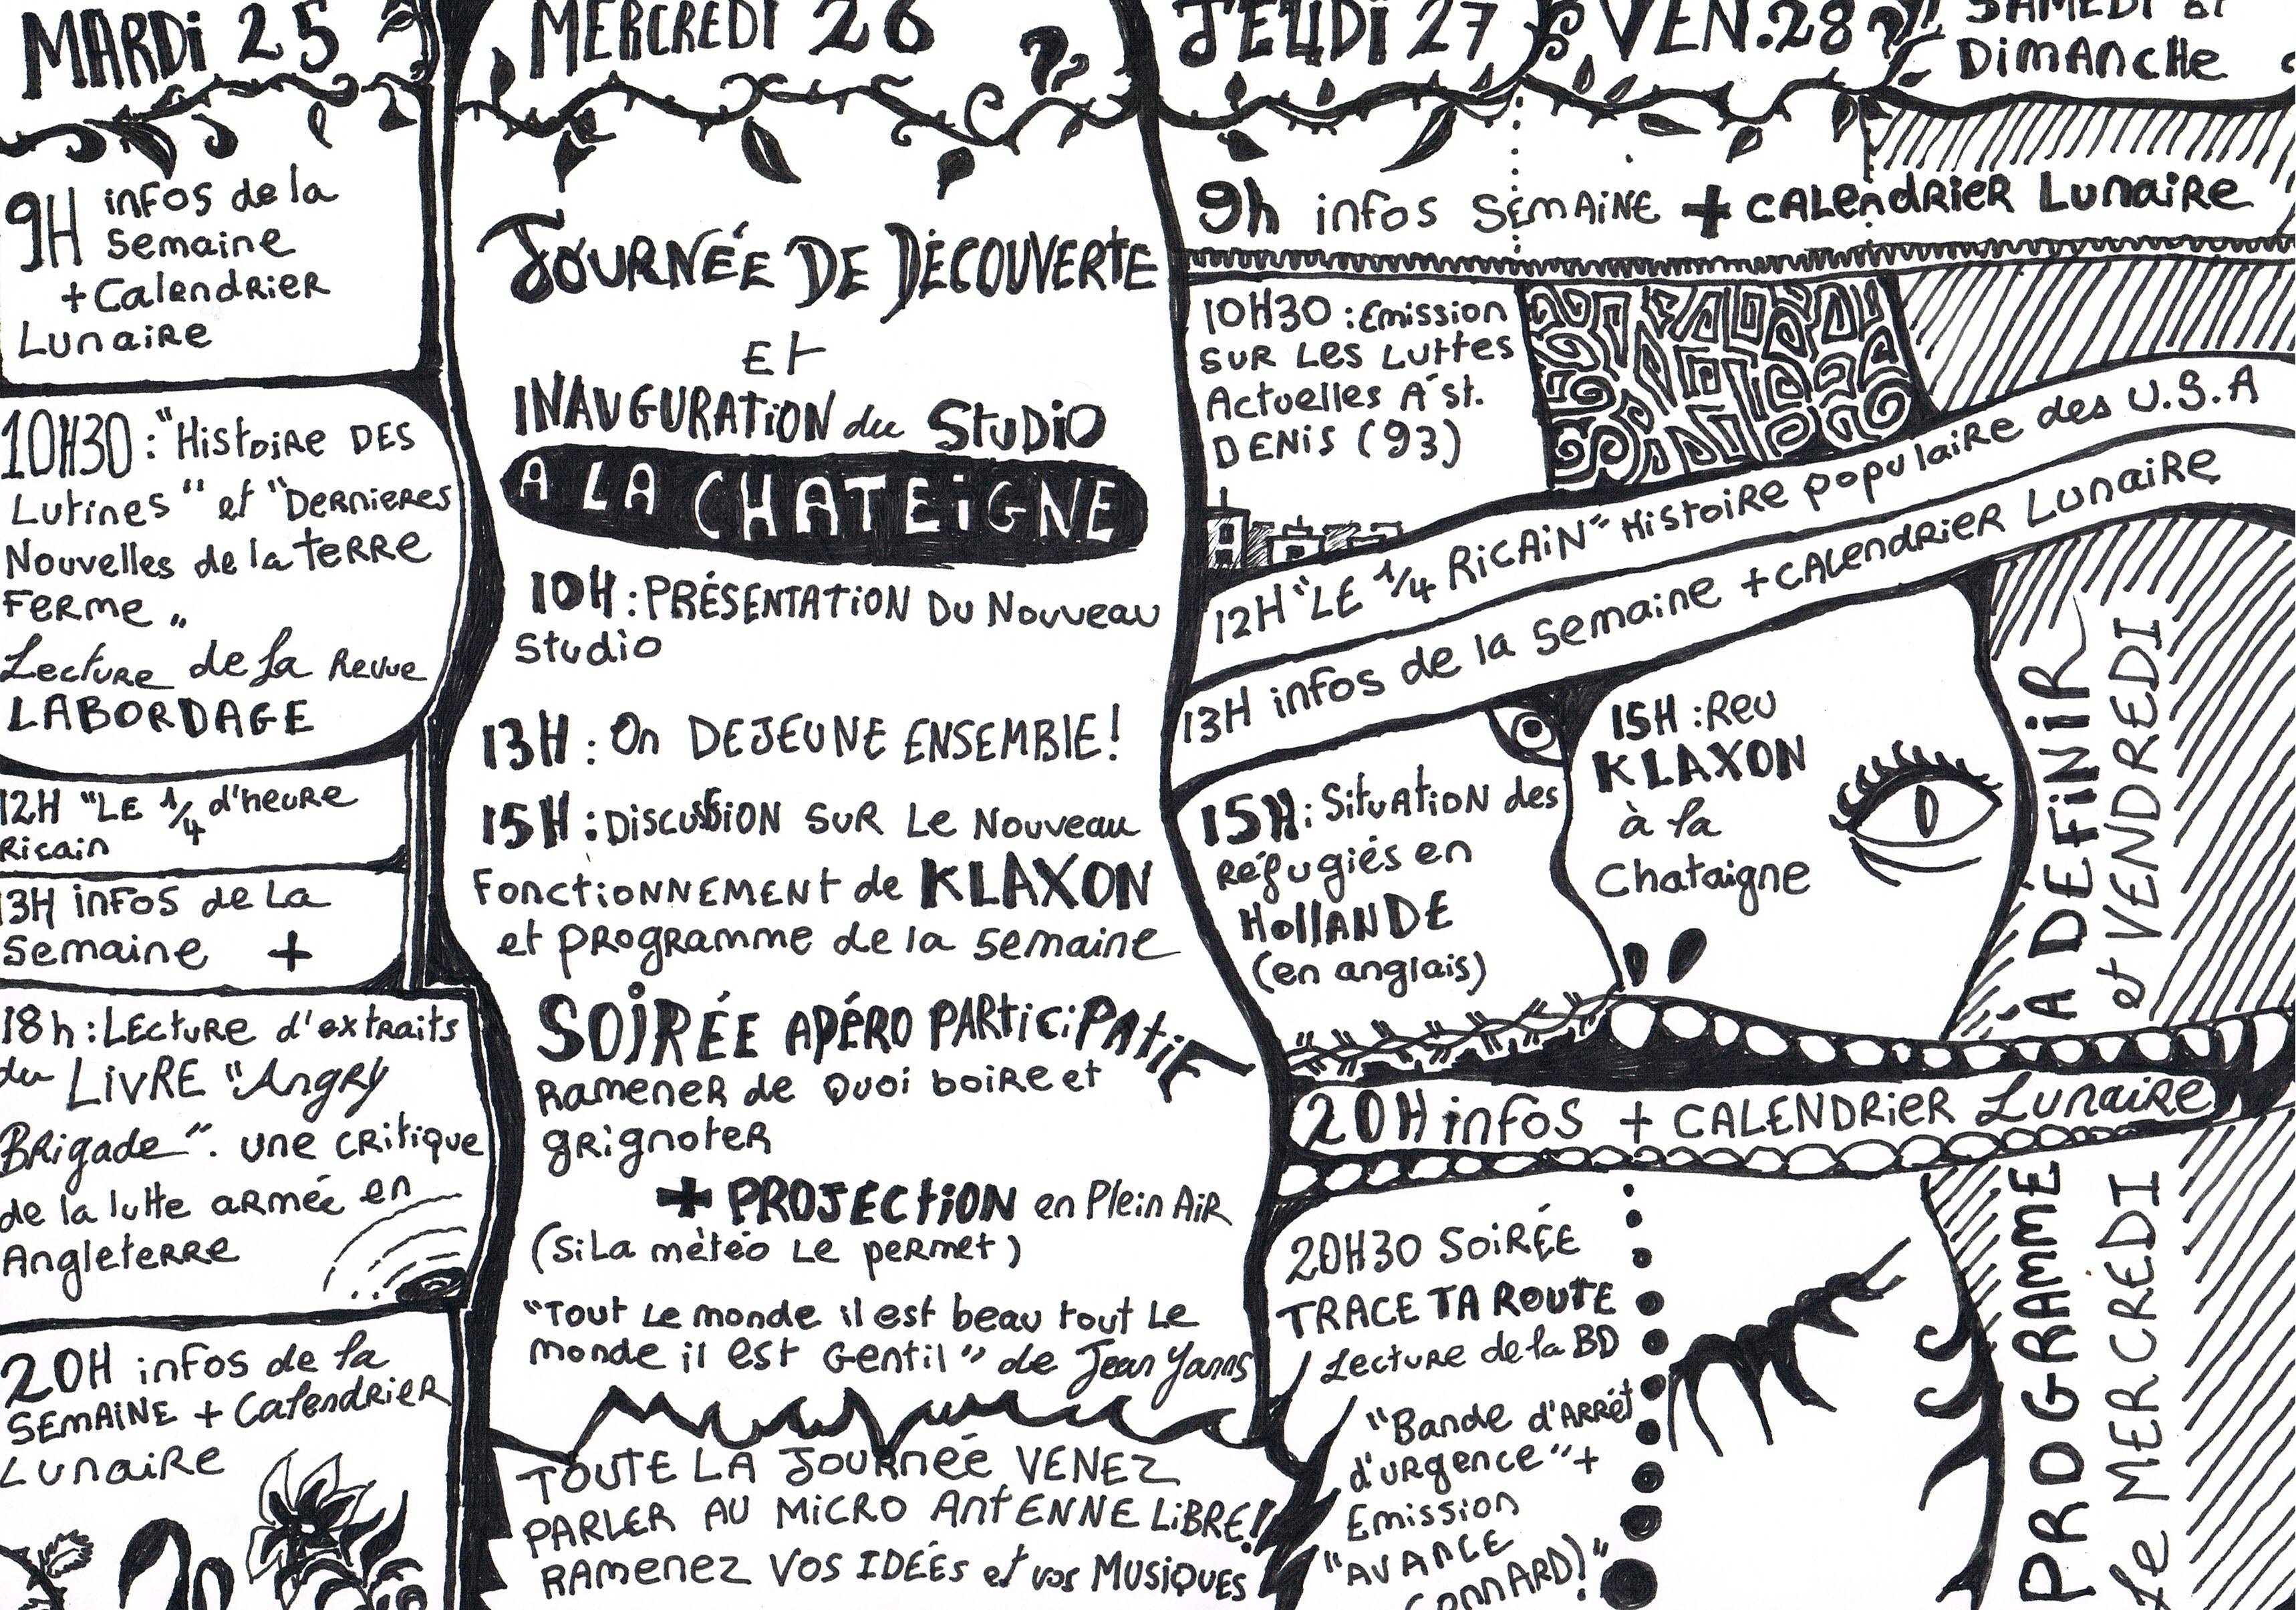 MARDI 25
9H infos de la
semaine
+ Calendrier
Lunaire
10H30 : "Histoire DES
Lutines" et "Dernieres
Nouvelles de la terre
Ferme"
Lecture de la Revue
LABORDAGE
12H "LE 1/4 d'heure
Ricain
13H infos de La
semaine +
18h : Lecture d'extraits
du LIVRE "Angry
Brigade". une critique
de la lutte armée en
Angleterre
20H infos de la
SEMAINE + Calendrier
Lunaire
MERCREDI 26
JOURNÉE DE DÉCOUVERTE
Et
INAUGURATION du Studio
A LA CHATEIGNE
10H : PRÉSENTATION Du Nouveau
Studio
13H : On DEJEUNE ENSEMBLE !
15H : Discussion SUR Le Nouveau
Fonctionnement de KLAXON
et programme de la semaine
SOIRÉE APÉRO PARTICIPATIF
Ramener de quoi boire et
grignoter
+ PROJECTION en Plein Air
(Si La météo Le permet)
"Tout Le monde il est beau tout Le
monde il est Gentil" de Jean Yanns
TOUTE LA JOURNÉE VENEZ
PARLER AU MICRO ANTENNE LIBRE !
RAMENEZ VOS IDÉES et vos MUSIQUES
JEUDI 27
VEN. 28
SAMEDI et
DIMANCHE
9h infos SEMAINE + CALENDRIER LUNAIRE
10H30 : Emission
SUR Les Luttes
Actuelles A St.
DENIS (93)
12H "LE 1/4 RICAIN" Histoire populaire des U.S.A
13H infos de la semaine + CALENDRIER LUNAIRE
15H : Situation des
Réfugiés en
HollANDE
(en anglais)
15H : Reu
KLAXON
à la
Chataigne
20H infos + CALENDRIER Lunaire
20H30 SOIRÉE
TRACE TA ROUTE
Lecture de la BD
"Bande d'Arrêt
d'urgence" +
Emission
"AVANCE
CONNARD)!"
PROGRAMME À DÉFINIR
le MERCREDI et VENDREDI